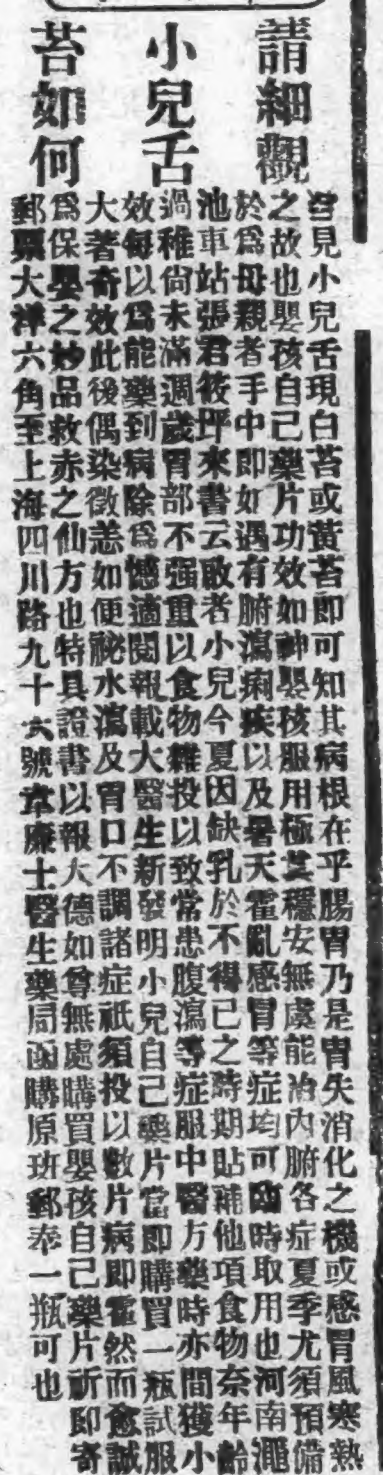 請細觀
小兒舌
苔如何
曾見小兒舌現白苔或黃苔即可知其病根在乎腸胃乃是胃失消化之機或感胃風寒熱
之故也嬰孩自己藥片功效如神嬰孩服用極其穩安無虞能治內腑各症夏季尤須預備
於爲母親者手中即如遇有腑瀉痢疾以及暑天霍亂感冒等症均可臨時取用也河南澠
池車站張君筱坪來書云敢者小兒今夏因缺乳於不得已之時期貼補他項食物奈年齡
過稚尙未滿週歲胃部不强重以食物雜投以致常患腹瀉等症服中醫方藥時亦間獲小
效每以爲能藥到病除爲憾適閱報載大醫生新發明小兒自己藥片當即購買一瓶試服
大著奇效此後偶染微恙如便祕水瀉及胃口不調諸症祇須投以數片病即霍然而愈誠
爲保嬰之妙品救赤之仙方也特具證書以報大德如尊無處購買嬰孩自己藥片祈即寄
郵票大洋六角至上海四川路九十六號韋廉士醫生藥局函購原班郵奉一瓶可也